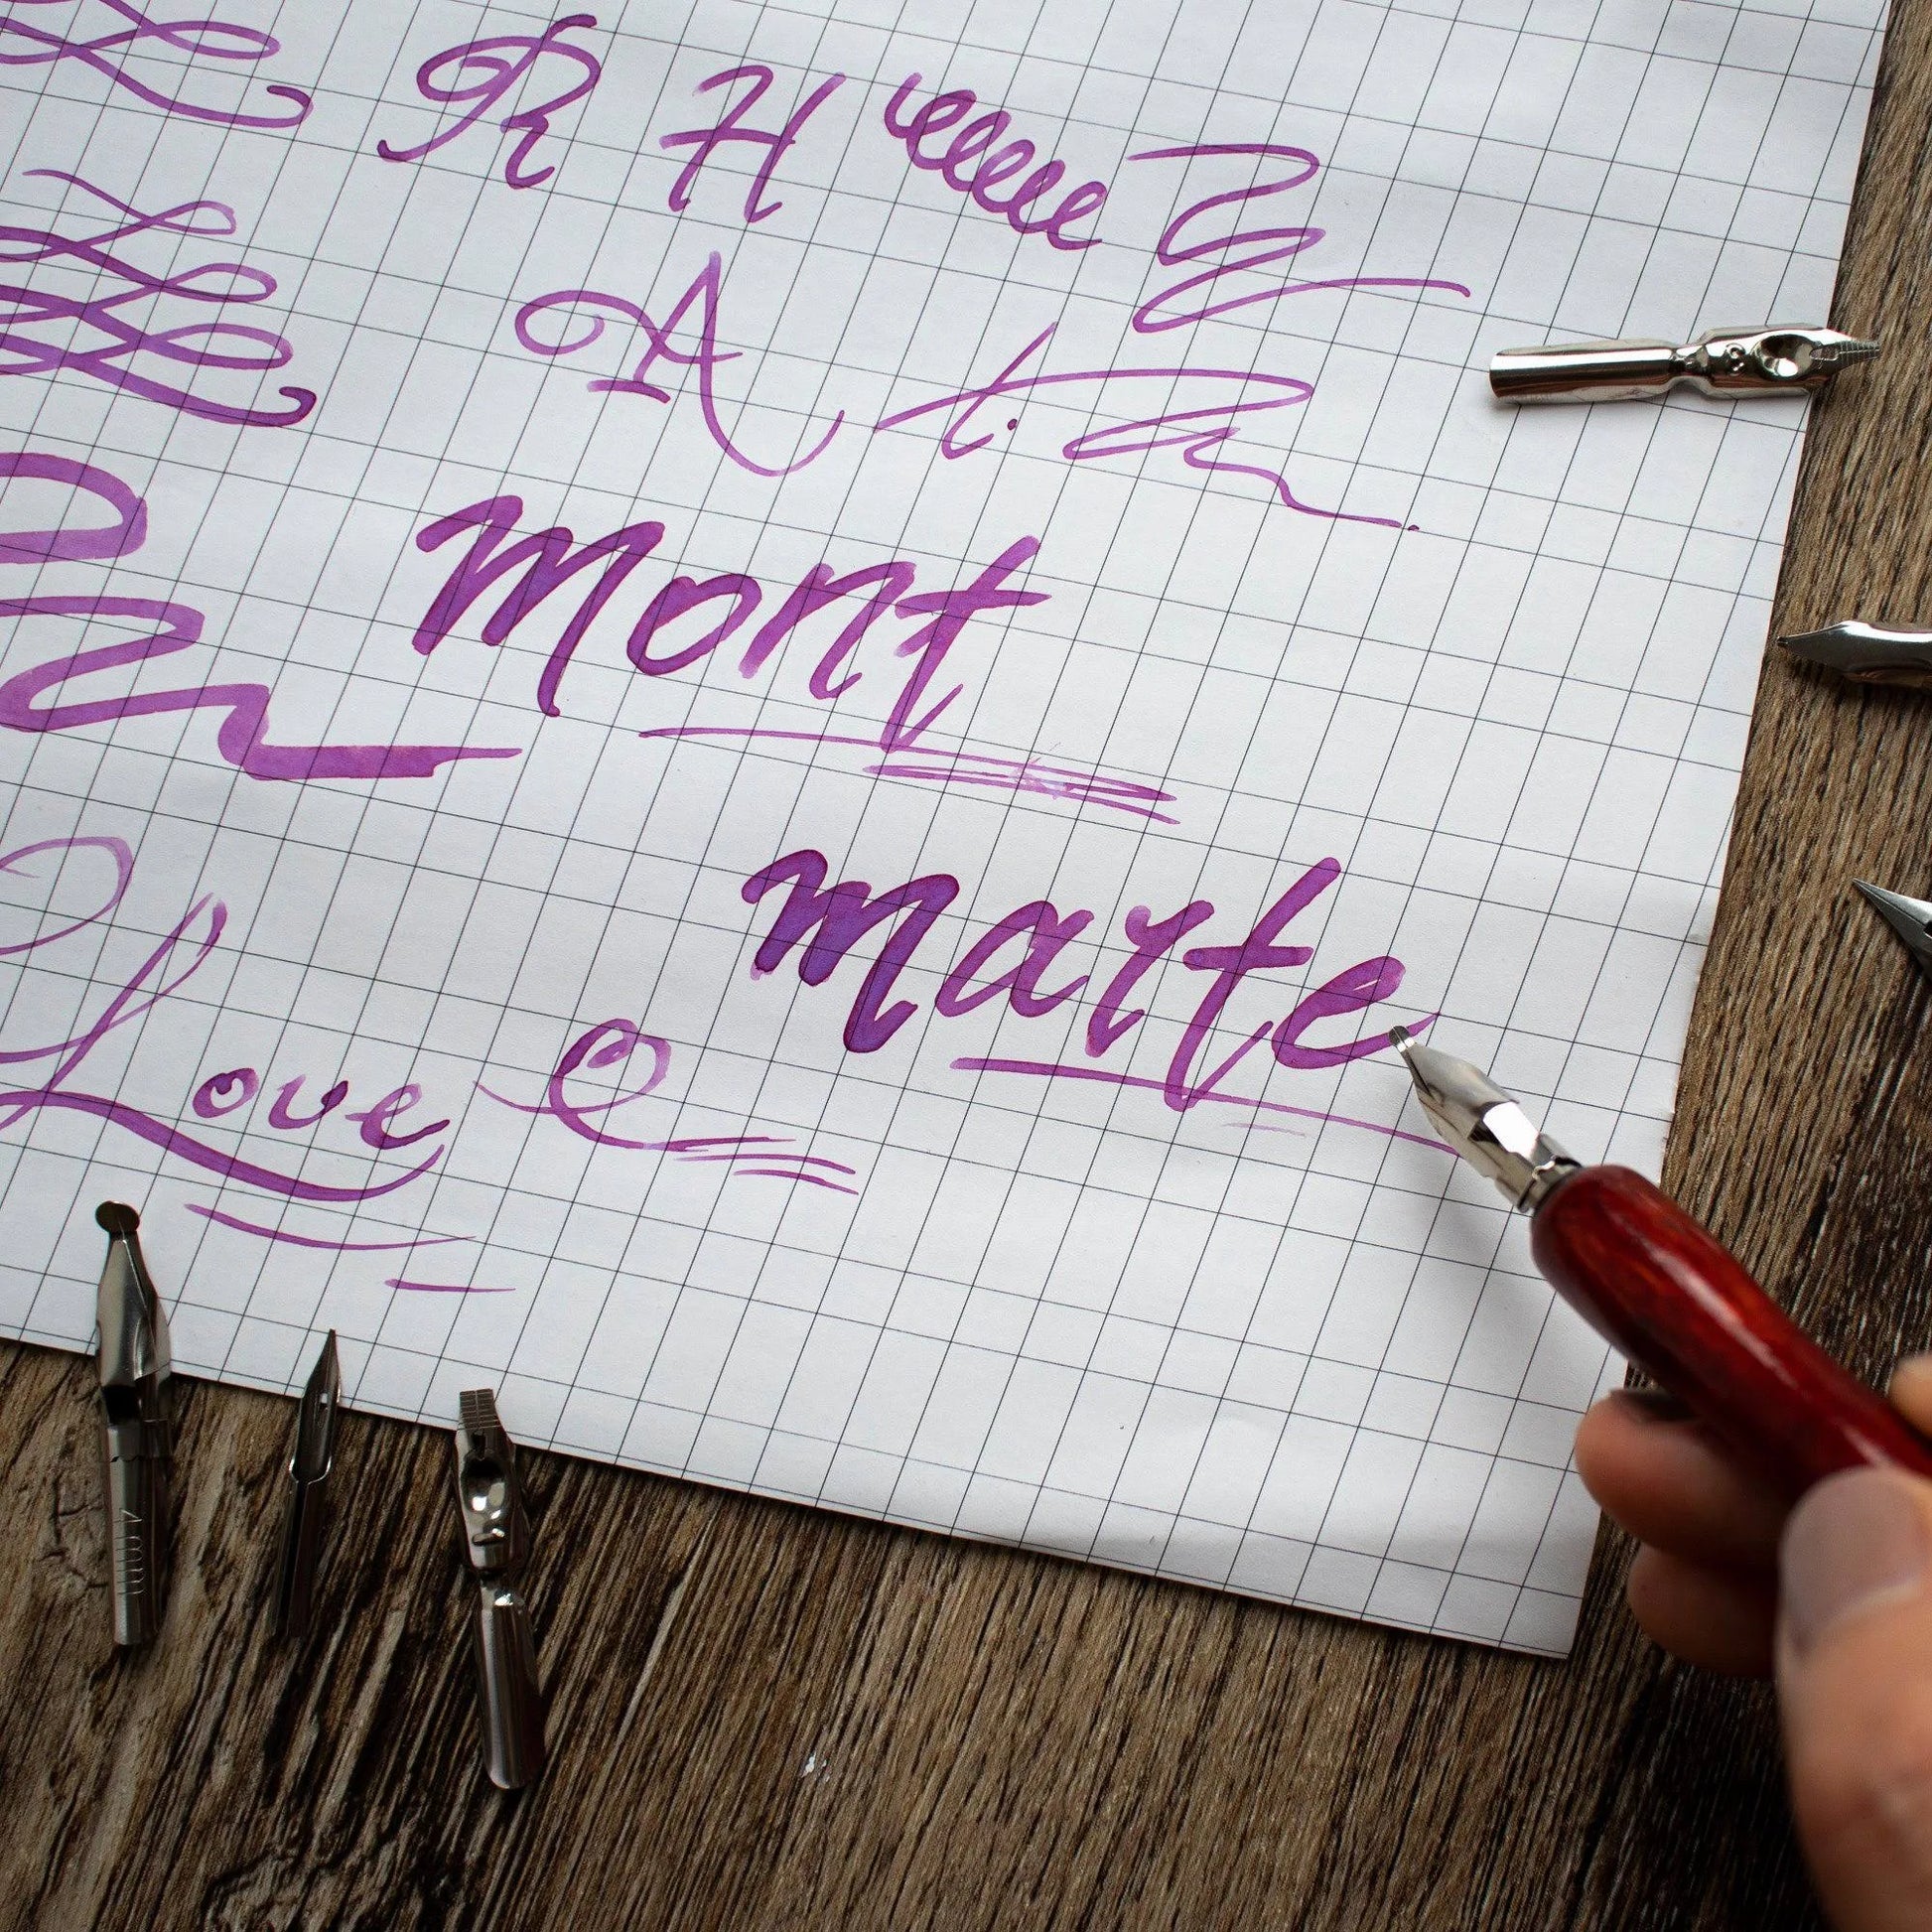 R H
A t.
Mont
marte
Love
4mm